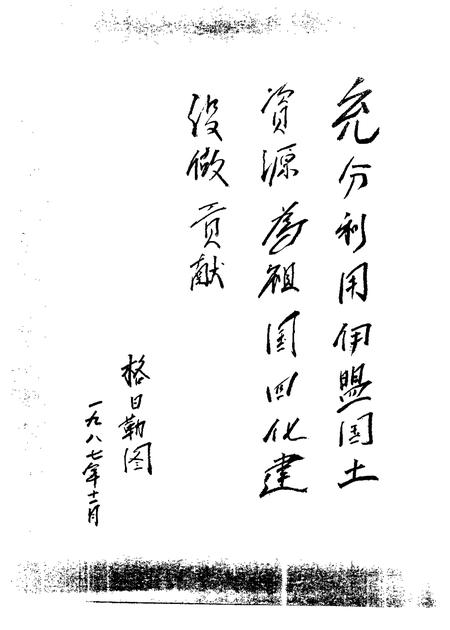 充分利用伊盟国土
資源為祖国四化建
设做贡献
格日勒图
一九八七年十二月